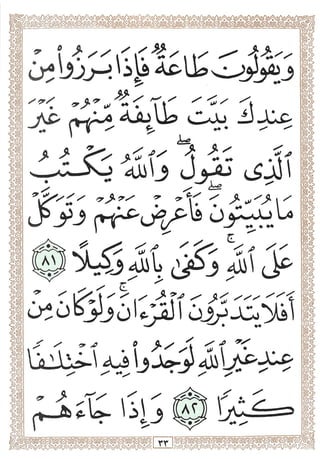 وَيَقُولُونَ طَاعَةٌ فَإِذَا بَرَزُوا۟ مِنْ
عِندِكَ بَيَّتَ طَآئِفَةٌ مِّنْهُمْ غَيْرَ
ٱلَّذِى تَقُولُ ۖ وَٱللَّهُ يَكْتُبُ
مَا يُبَيِّتُونَ ۖ فَأَعْرِضْ عَنْهُمْ وَتَوَكَّلْ
عَلَى ٱللَّهِ ۚ وَكَفَىٰ بِٱللَّهِ وَكِيلًا ٨١
أَفَلَا يَتَدَبَّرُونَ ٱلْقُرْءَانَ ۚ وَلَوْ كَانَ مِنْ
عِندِ غَيْرِ ٱللَّهِ لَوَجَدُوا۟ فِيهِ ٱخْتِلَٰفًا
كَثِيرًا ٨٢ وَإِذَا جَآءَهُمْ
٣٣